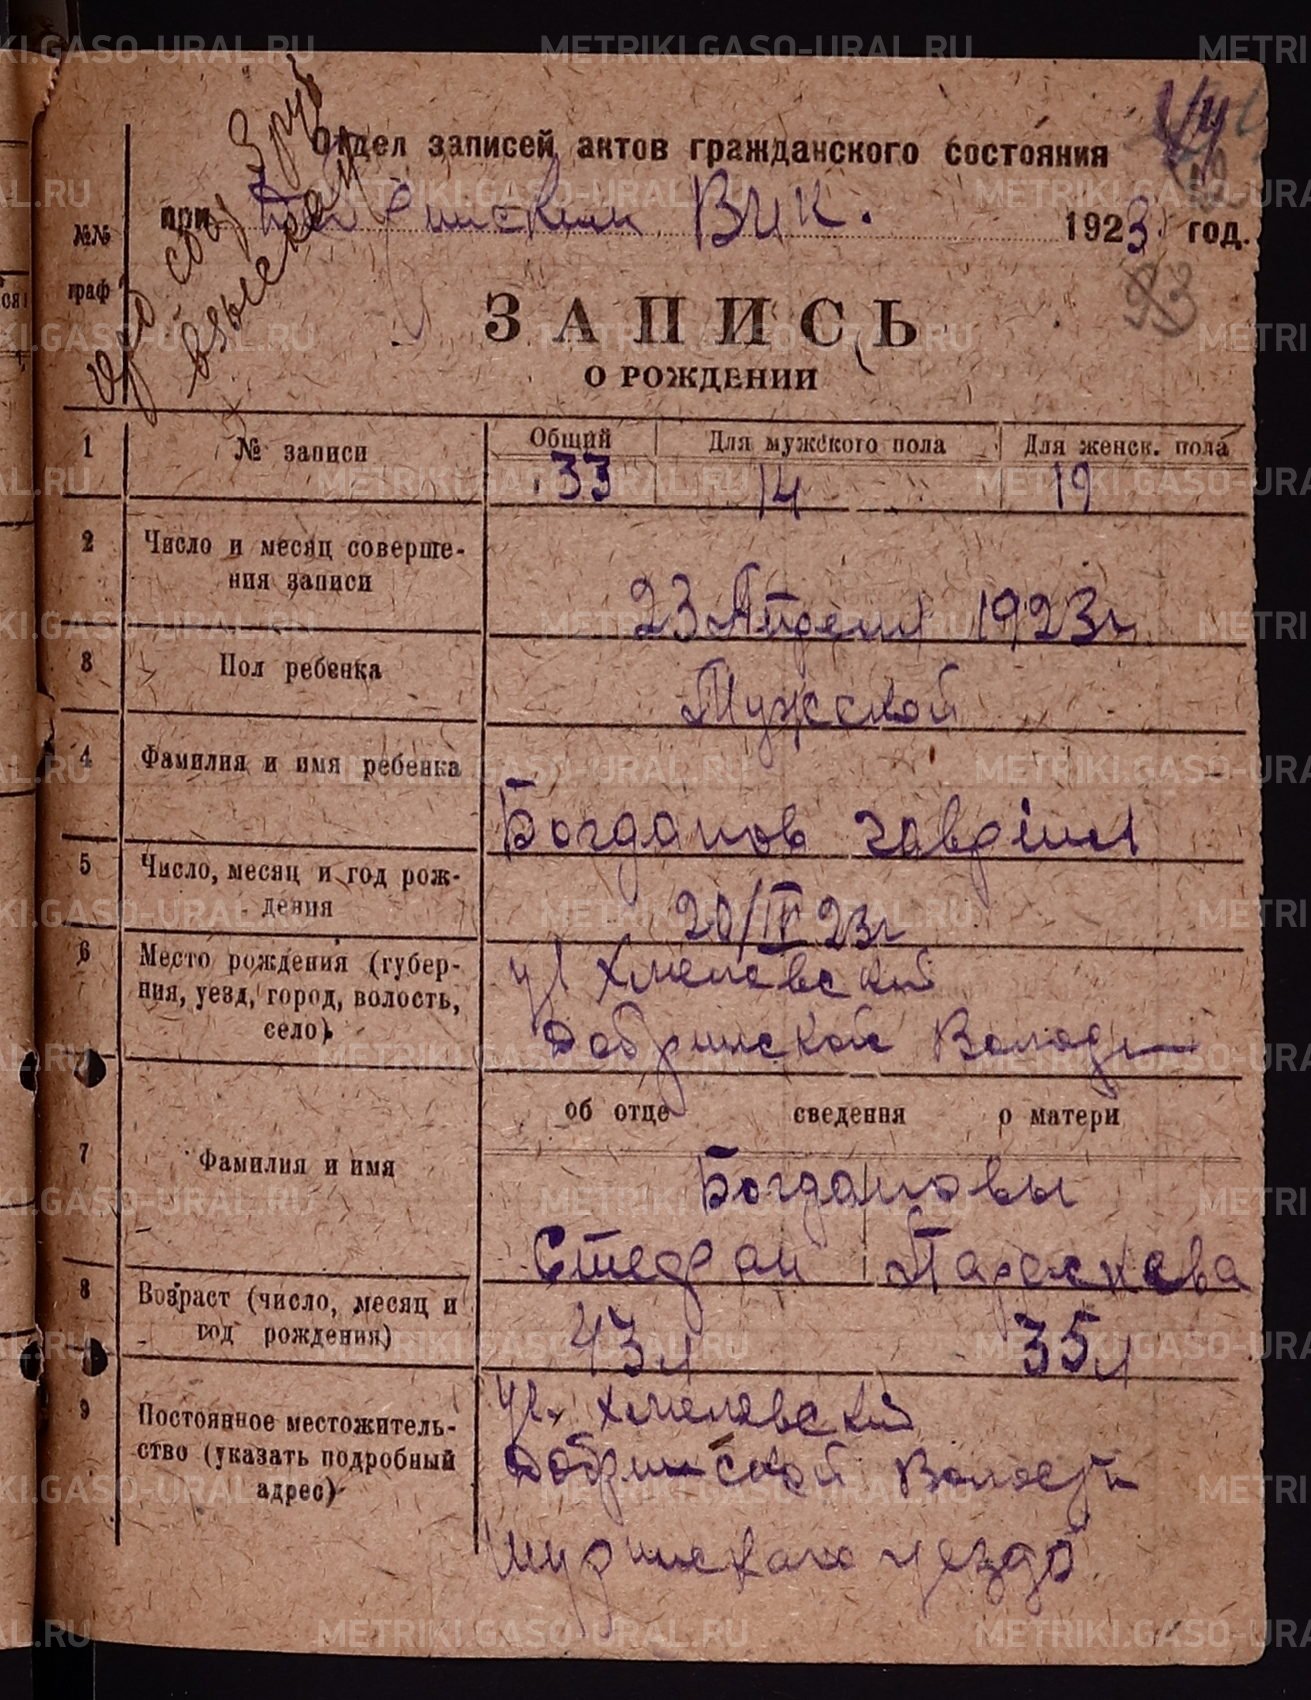 Отдел записей актов гражданского состояния
при Добринском Вик. 1923 год.
№№
граф
93
ЗАПИСЬ
О РОЖДЕНИИ
1 № записи Общий Для мужского пола Для женск. пола
33 14 19
2 Число и месяц соверше-
ния записи
23 Апреля 1923 г
3 Пол ребенка
Мужской
4 Фамилия и имя ребенка
Богданов Гавріил
5 Число, месяц и год рож-
дения
20/IV 23 г
6 Место рождения (губер-
ния, уезд, город, волость,
село).
Хмелевский
Добринской Волости
об отце сведения о матери
7 Фамилия и имя
Богдановы
Стефан Параскева
8 Возраст (число, месяц и
год рождения)
43 л 35 л
9 Постоянное местожитель-
ство (указать подробный
адрес)
Хмелевский
Добринской Волости
уезда
METRIKI.GASO-URAL.RU